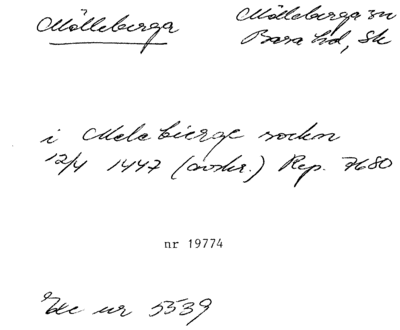 Mölleberga
Mölleberga sn
Bara hd, Sk
i Melebierge sokn
12/4 1447 (avskr.) Rep. 7680
nr 19774
Ekc nr 5539